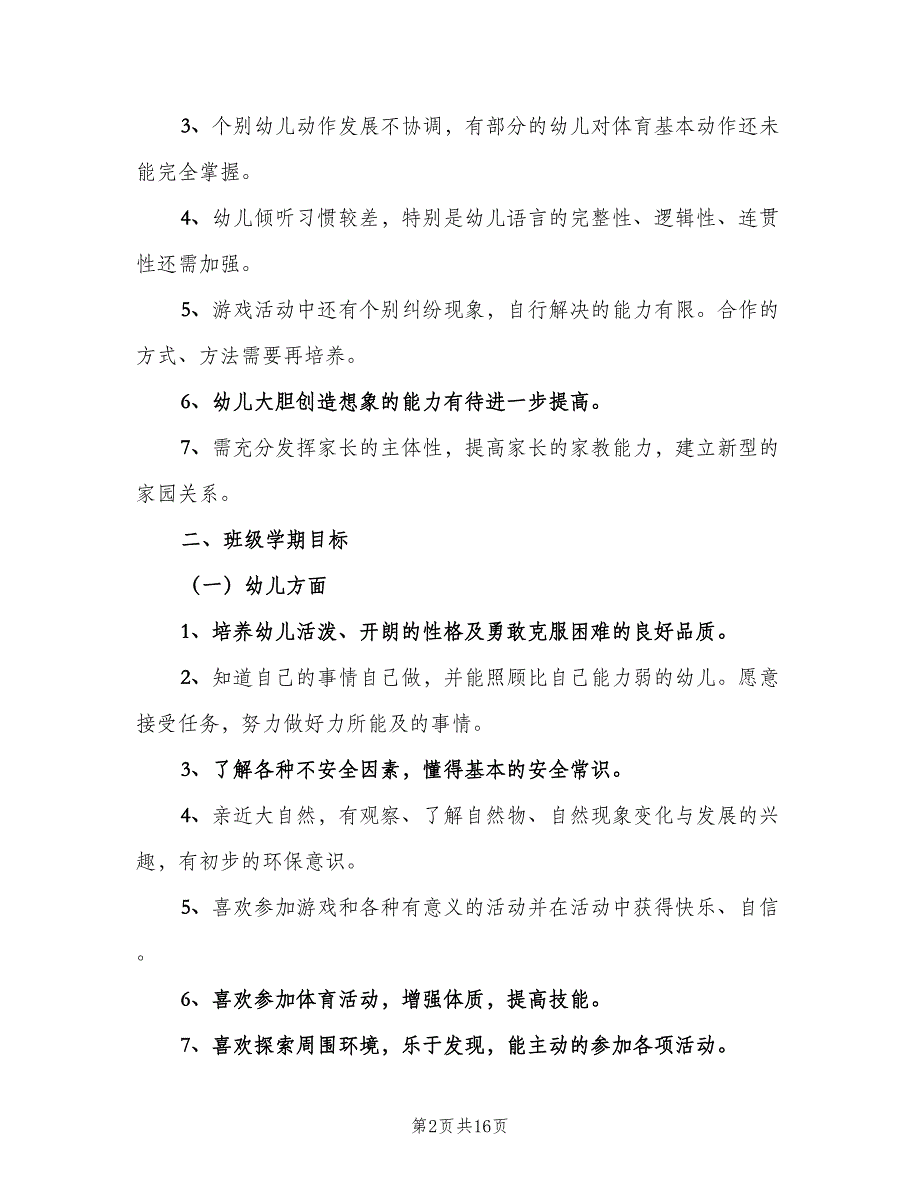 3、个别幼儿动作发展不协调，有部分的幼儿对体育基本动作还未
能完全掌握。
4、幼儿倾听习惯较差，特别是幼儿语言的完整性、逻辑性、连贯
性还需加强。
5、游戏活动中还有个别纠纷现象，自行解决的能力有限。合作的
方式、方法需要再培养。
6、幼儿大胆创造想象的能力有待进一步提高。
7、需充分发挥家长的主体性，提高家长的家教能力，建立新型的
家园关系。
二、班级学期目标
（一）幼儿方面
1、培养幼儿活泼、开朗的性格及勇敢克服困难的良好品质。
2、知道自己的事情自己做，并能照顾比自己能力弱的幼儿。愿意
接受任务，努力做好力所能及的事情。
3、了解各种不安全因素，懂得基本的安全常识。
4、亲近大自然，有观察、了解自然物、自然现象变化与发展的兴
趣，有初步的环保意识。
5、喜欢参加游戏和各种有意义的活动并在活动中获得快乐、自信
。
6、喜欢参加体育活动，增强体质，提高技能。
7、喜欢探索周围环境，乐于发现，能主动的参加各项活动。
第2页共16页